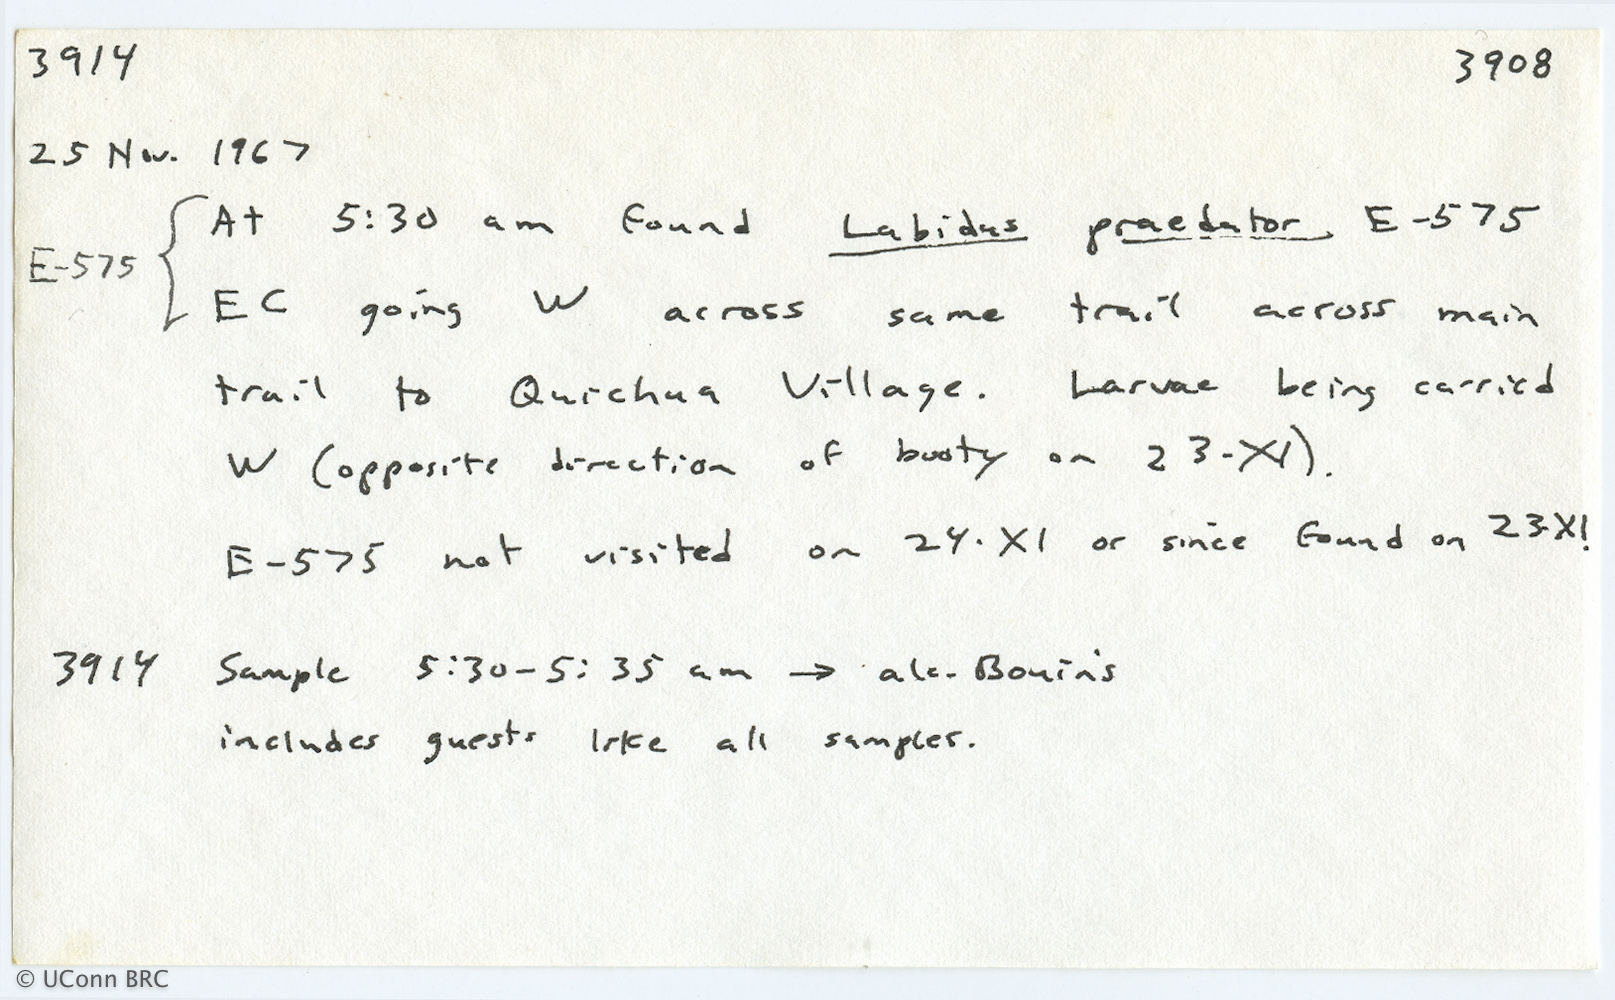 3914 3908
25 Nov. 1967
At 5:30 am found Labidus praedator E-575
E-575
EC going W across same trail across main
trail to Quichua Village. Larvae being carried
W (opposite direction of booty on 23-XI).
E-575 not visited on 24-XI or since found on 23-XI
3914 Sample 5:30-5:35 am → alc. Bouin's
includes guests like all samples.
© UConn BRC